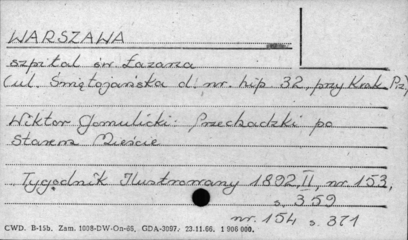 WARSZAWA
szpital św. Łazarza
(ul. Świętojańska d. nr. hip 32, przy Krak. Prz)
Wiktor Gomulicki: Przechadzki po
Starem Mieście
Tygodnik Ilustrowany 1892, II, nr. 153,
s. 359
nr. 154 s. 371
CWD. B-15b. Zam. 1008-DW-On-66, GDA-3097, 23.11.66. 1 906 000.